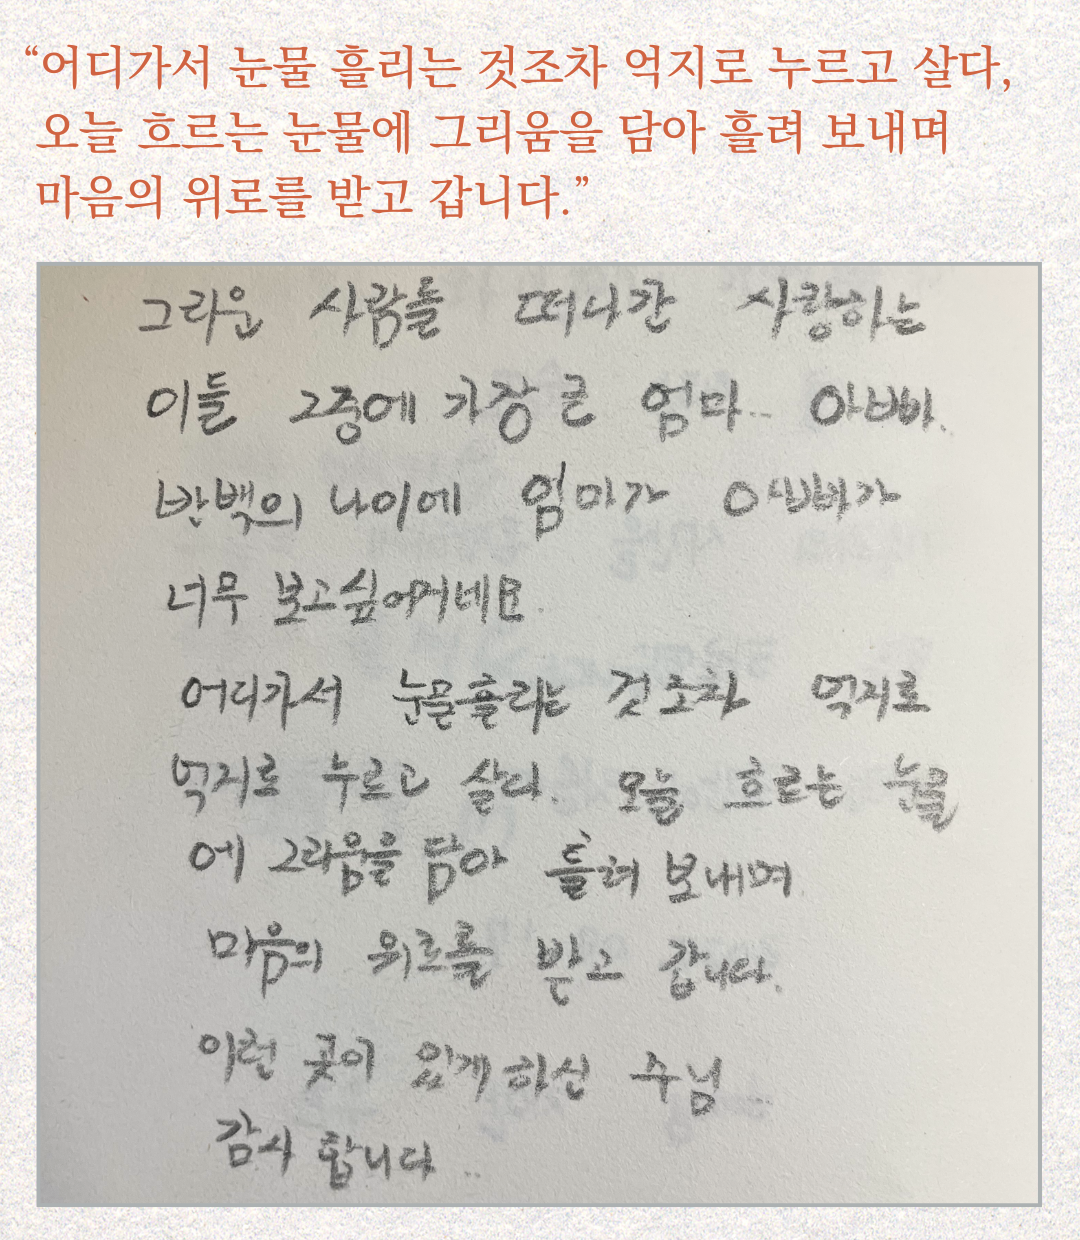 “어디가서 눈물 흘리는 것조차 억지로 누르고 살다,
오늘 흐르는 눈물에 그리움을 담아 흘려 보내며
마음의 위로를 받고 갑니다.”
그리운 사람들 떠나간 사랑하는
이들 그중에 가장 큰 엄마.. 아빠..
반백의 나이에 엄마가 아빠가
너무 보고싶어지네요.
어디가서 눈물흘리는 것 조차 억지로
억지로 누르고 살다. 오늘 흐르는 눈물
에 그리움을 담아 흘려 보내며.
마음의 위로를 받고 갑니다.
이런 곳이 있게 하신 주님..
감사 합니다..